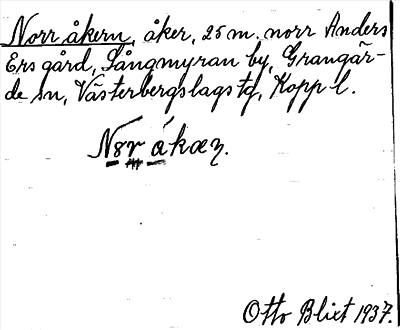 Norr åkern, åker, 25 m. norr Anders
Ers gård, Sångmyran by, Grangär-
de sn, Västerbergslags tg, Kopp l.
N8r ákæn.
Otto Blixt 1937.